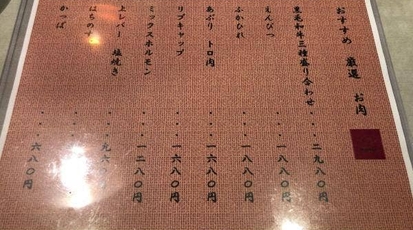 おすすめ 厳選 お肉
黒毛和牛三種盛り合わせ・・・二九八〇円
えんぴつ・・・・一八八〇円
ふかひれ・・・・一八八〇円
あぶり トロ肉・・・・一六八〇円
リブキャップ・・・・一六八〇円
ミックスホルモン・・・・一二八〇円
上レバー 塩焼き・・・・
はちのす
かっぱ・・・・六八〇円